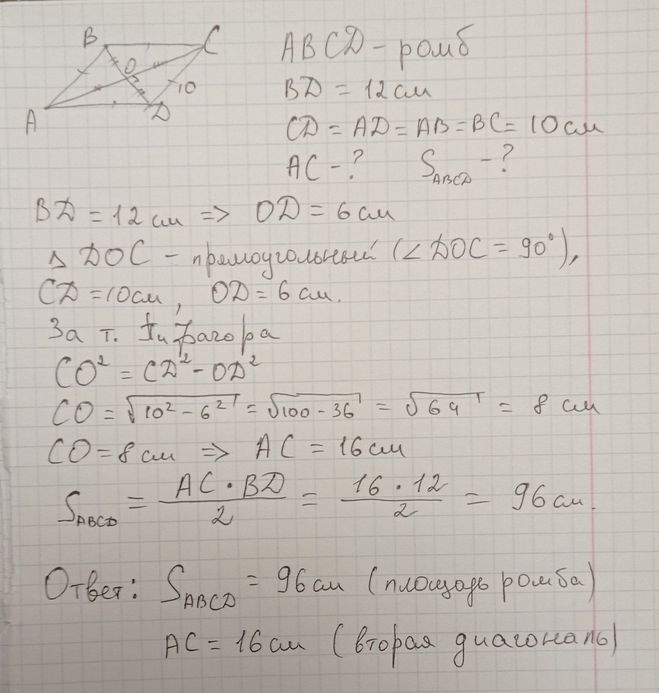 B C
O
10
A D
ABCD – ромб
BD = 12 см
CD = AD = AB = BC = 10 см
AC – ? S_ABCD – ?
BD = 12 см => OD = 6 см
Δ DOC – прямоугольный (∠DOC = 90°),
CD = 10 см, OD = 6 см.
За т. Пифагора
CO² = CD² - OD²
CO = √(10² - 6²) = √(100 - 36) = √64 = 8 см
CO = 8 см => AC = 16 см
S_ABCD = (AC · BD)/2 = (16 · 12)/2 = 96 см.
Ответ: S_ABCD = 96 см (площадь ромба)
AC = 16 см (вторая диагональ)